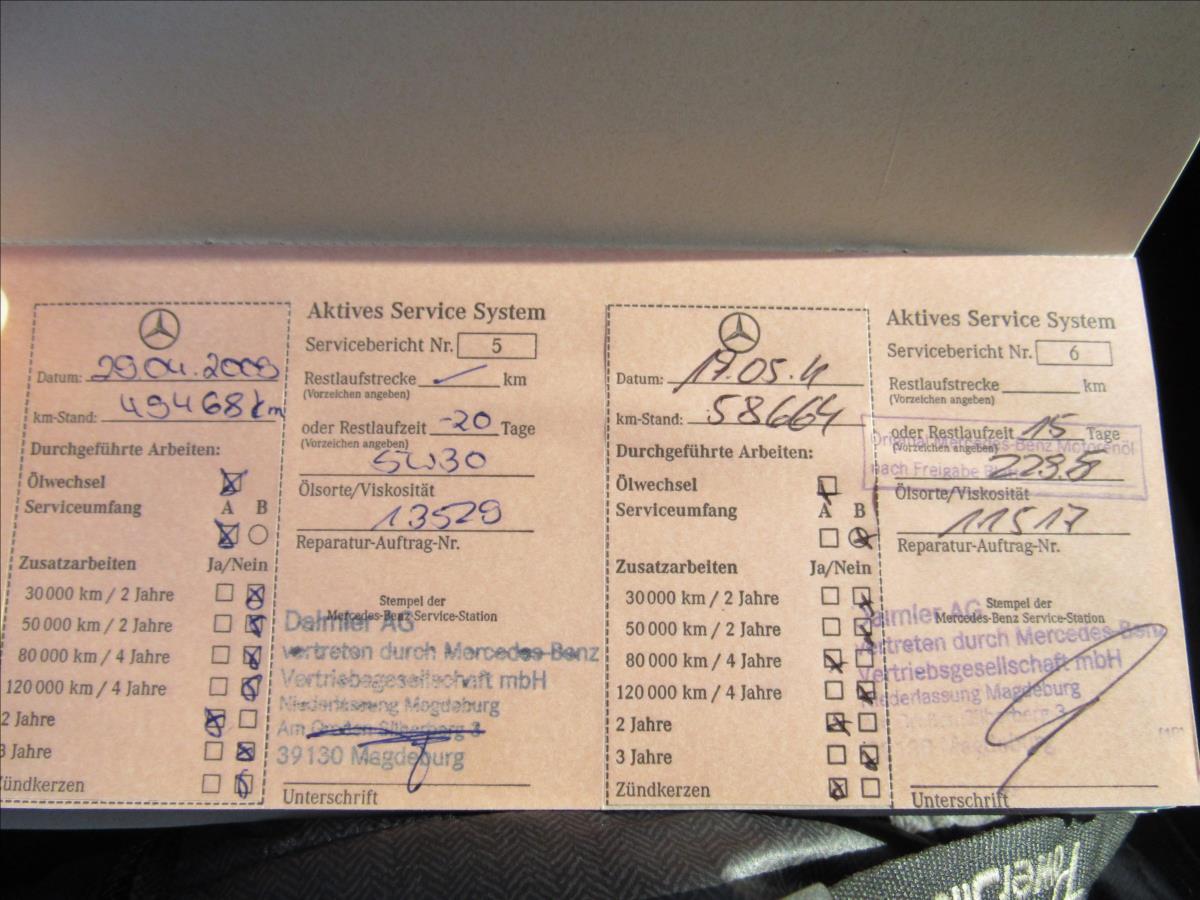 Aktives Service System
Servicebericht Nr. 5
Datum: 29.04.2009
Restlaufstrecke km
(Vorzeichen angeben)
km-Stand: 49468 km
oder Restlaufzeit -20 Tage
(Vorzeichen angeben)
Durchgeführte Arbeiten:
5W30
Ölwechsel
Ölsorte/Viskosität
Serviceumfang A B
13529
Reparatur-Auftrag-Nr.
Zusatzarbeiten Ja/Nein
30 000 km / 2 Jahre
50 000 km / 2 Jahre
80 000 km / 4 Jahre
120 000 km / 4 Jahre
2 Jahre
3 Jahre
Zündkerzen
Stempel der
Mercedes-Benz Service-Station
Daimler AG
vertreten durch Mercedes-Benz
Vertriebsgesellschaft mbH
Niederlassung Magdeburg
Am Großen Silberberg 3
39130 Magdeburg
Unterschrift
Aktives Service System
Servicebericht Nr. 6
Datum: 17.05.11
Restlaufstrecke km
(Vorzeichen angeben)
km-Stand: 58664
oder Restlaufzeit 15 Tage
(Vorzeichen angeben)
Original Mercedes-Benz Motorenöl
nach Freigabe
Durchgeführte Arbeiten:
Ölwechsel
Ölsorte/Viskosität
Serviceumfang A B
11517
Reparatur-Auftrag-Nr.
Zusatzarbeiten Ja/Nein
30 000 km / 2 Jahre
50 000 km / 2 Jahre
80 000 km / 4 Jahre
120 000 km / 4 Jahre
2 Jahre
3 Jahre
Zündkerzen
Stempel der
Mercedes-Benz Service-Station
Daimler AG
vertreten durch Mercedes-Benz
Vertriebsgesellschaft mbH
Niederlassung Magdeburg
Großen Silberberg 3
39130 Magdeburg
Unterschrift